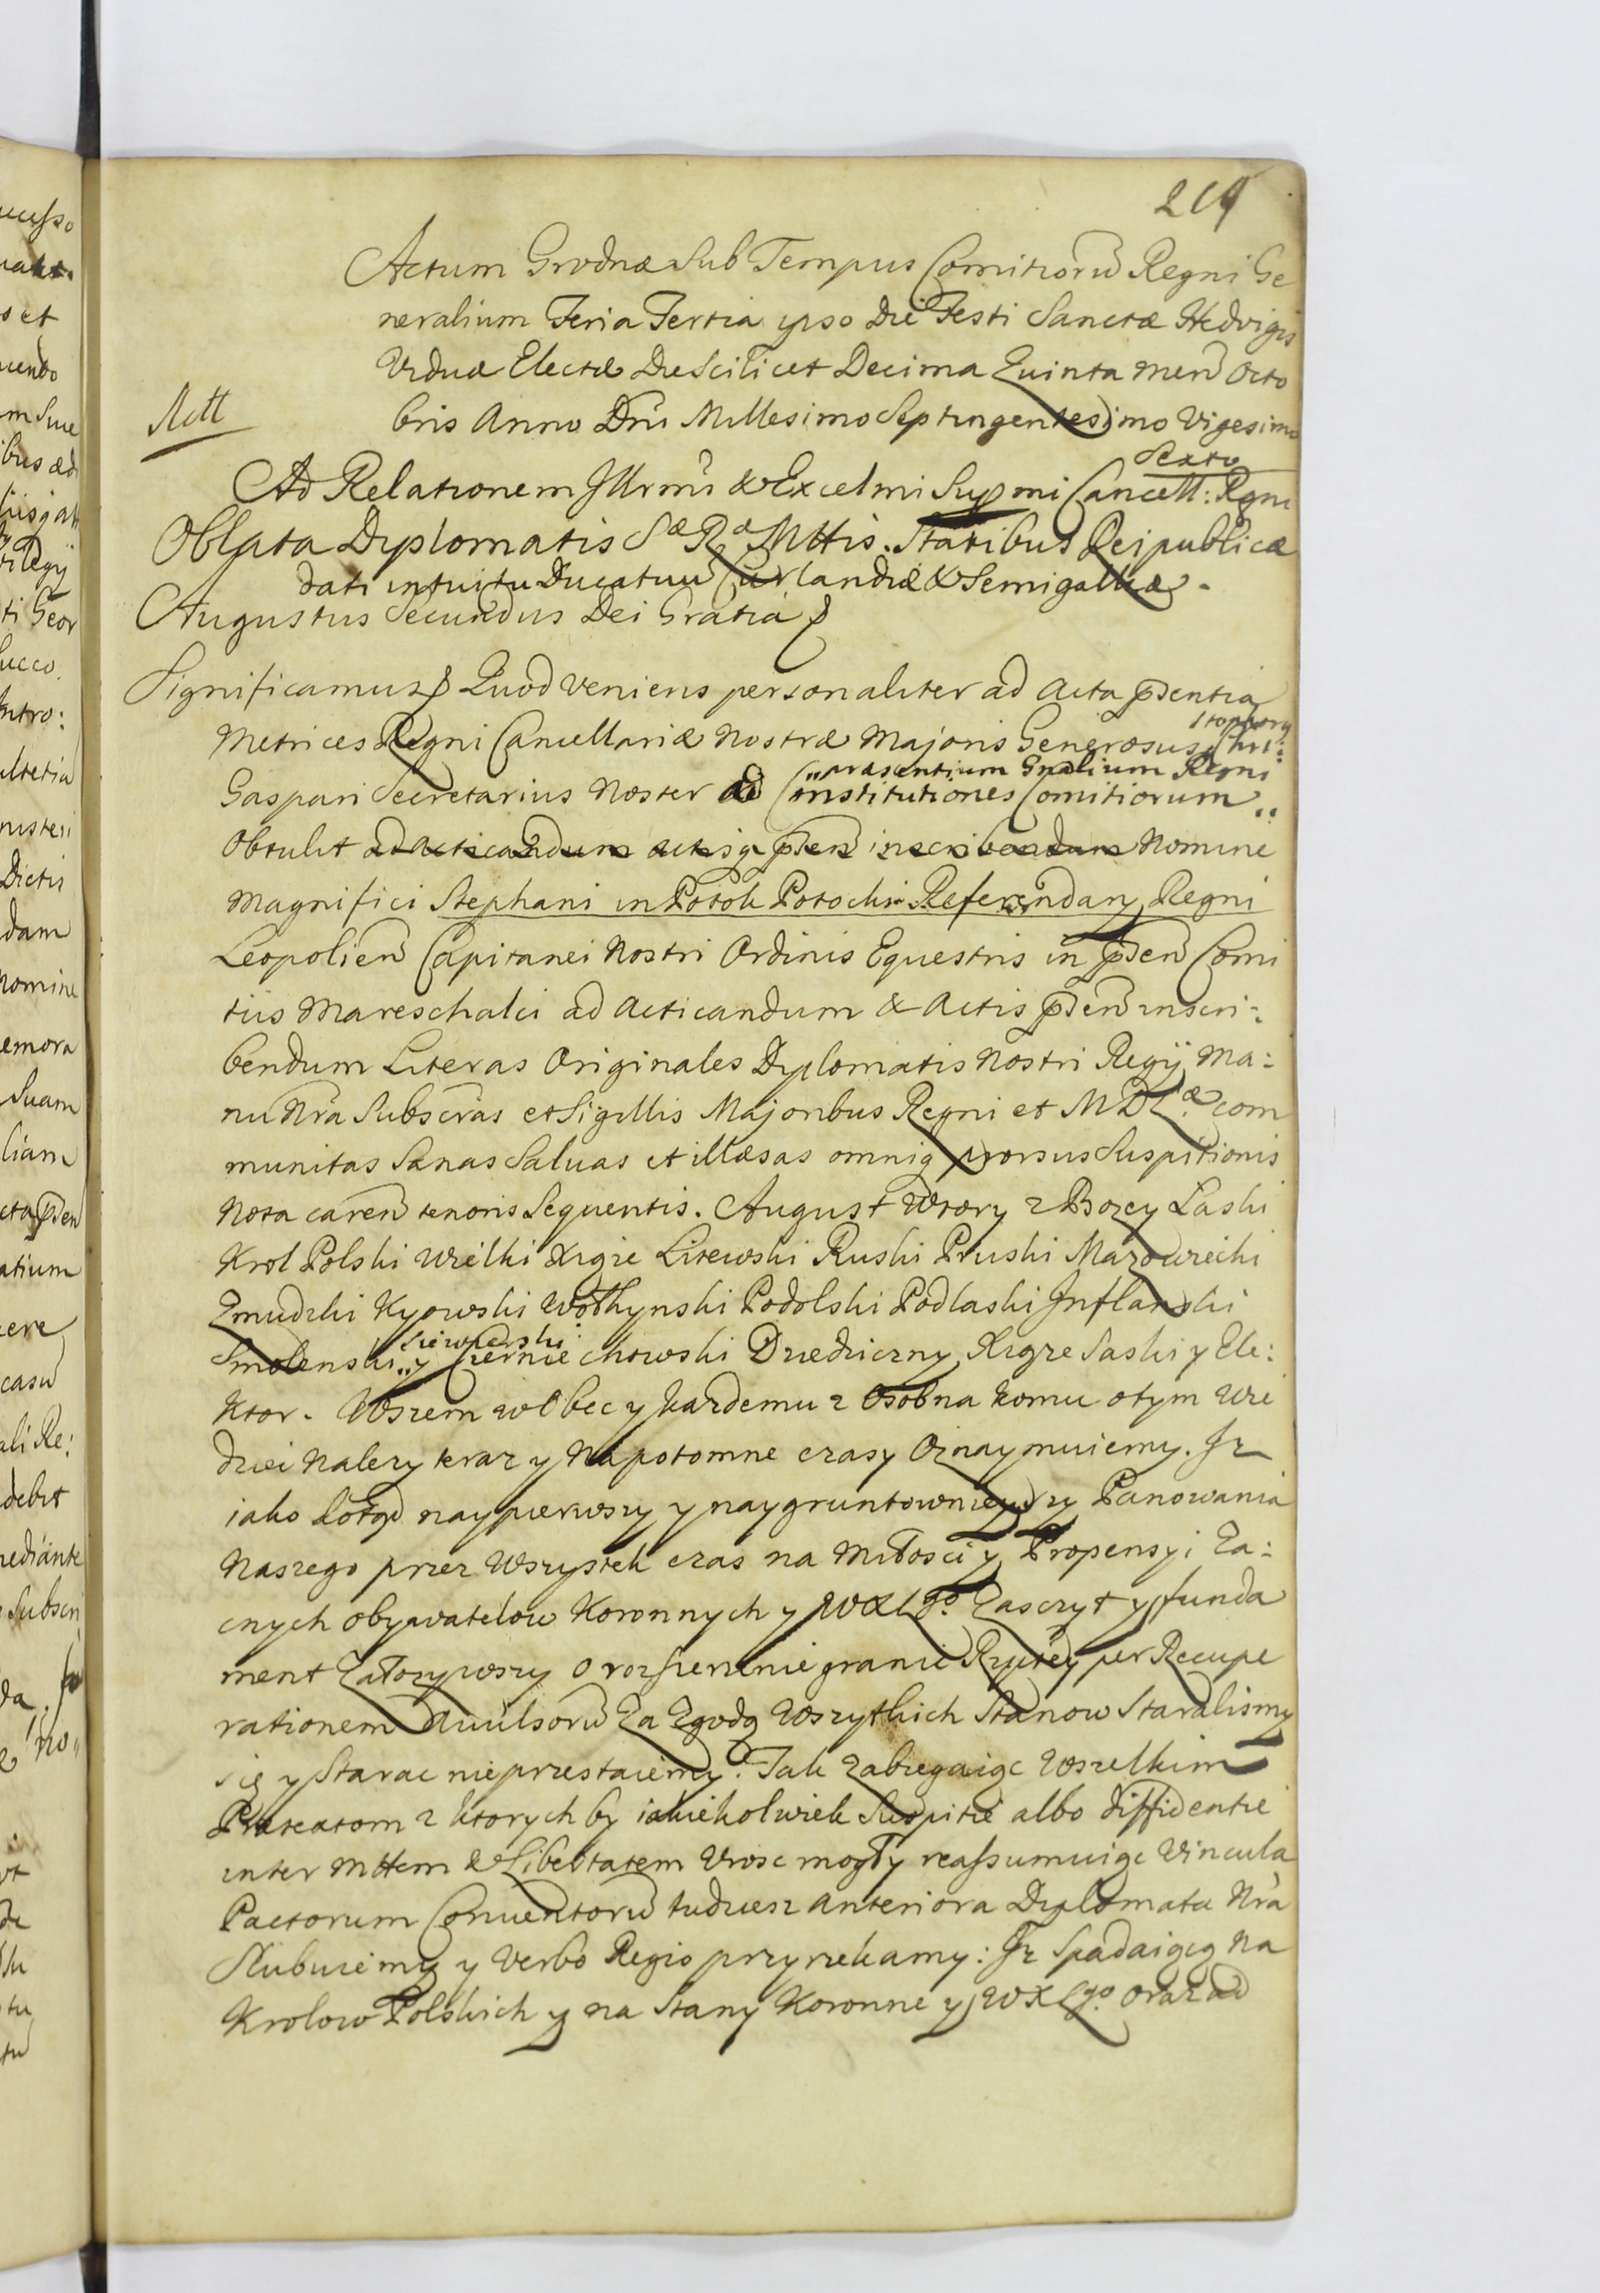 219
Actum Grodnæ Sub Tempus Comitiorũ Regni Ge
neralium Feria Tertia ipso Die Festi Sanctæ Hedvigis
Viduæ Electæ Die Scilicet Decima Quinta Men̄ Octo
bris Anno Dn̄i Millesimo Septingentesimo Vigesimo
Sexto
Ad Relationem Illrmi & Excelmi Supmi Cancell: Rgni
Oblata Dyplomatis Sæ Ræ Mttis. Statibus Reipublicæ
dati intuitu Ducatuũ Curlandiæ & Semigalliæ.
Augustus Secundus Dei Gratia
Significamus Quod veniens personaliter ad Acta p̄sentia
Metrices Regni Cancellariæ Nostræ Majoris Generosus Chri:
stophorg
Gaspari Secretarius Noster ad Constitutiones Comitiorum
præsentium Gnalium Regni
Obtulit ad acticandum actisq p̄sen̄ inscribendum Nomine
Magnifici Stephani in Potok Potocki Referendarÿ Regni
Leopolien̄ Capitanei Nostri Ordinis Equestris in p̄sen̄ Comi
tiis Mareschalci ad Acticandum & Actis p̄sen̄ inscri:
bendum Literas Originales Dyplomatis Nostri Regÿ Ma:
nu Nrā Subscrās et Sigillis Majoribus Regni et MDLæ com
munitas Sanas Saluas et illæsas omniq prorsus Suspitionis
Nota caren̄ tenoris Sequentis. August Wtory z Bozey Laski
Krol Polski Wielki Xiąze Litewski Ruski Pruski Mazowiecki
Zmudzki Kyowski Wołhynski Podolski Podlaski Inflantski
Smolenski y Czernie chowski Dziedziczny Xiąze Saski y Ele:
Siewierski
Ktor. Wszem wobec y kazdemu z Osobna komu o tym wie
dziec Nalezy teraz y Na potomne czasy Oznaymuiemy. Iz
iako Zakład naypierwszy y naygruntownieyszy Panowania
Naszego przez Wszystek czas na Miłosci y Propensyi Za:
cnych obywatelow Koronnych y WXLgo. Zasczyt y funda
ment Załozywszy o rozszerzenie granic Rzptey per Recupe
rationem Auulsorũ Za Zgodą Wszytkich Stanow Staralismy
się y Starac nie przestaiemy. Tak zabiegaiąc Wszelkim
Prætextom z ktorych by iakiekolwiek Suspitie albo diffidentie
inter Mttem & Libertatem Urosc mogły reassumuiąc Vincula
Pactorum Conuentorũ tudziesz anteriora Dyplomata Nrā
Slubuiemy y Verbo Regio przyrzekamy: Iz Spadaiącą Na
Krolow Polskich y na Stany Koronne y WXLgo. oraz ad